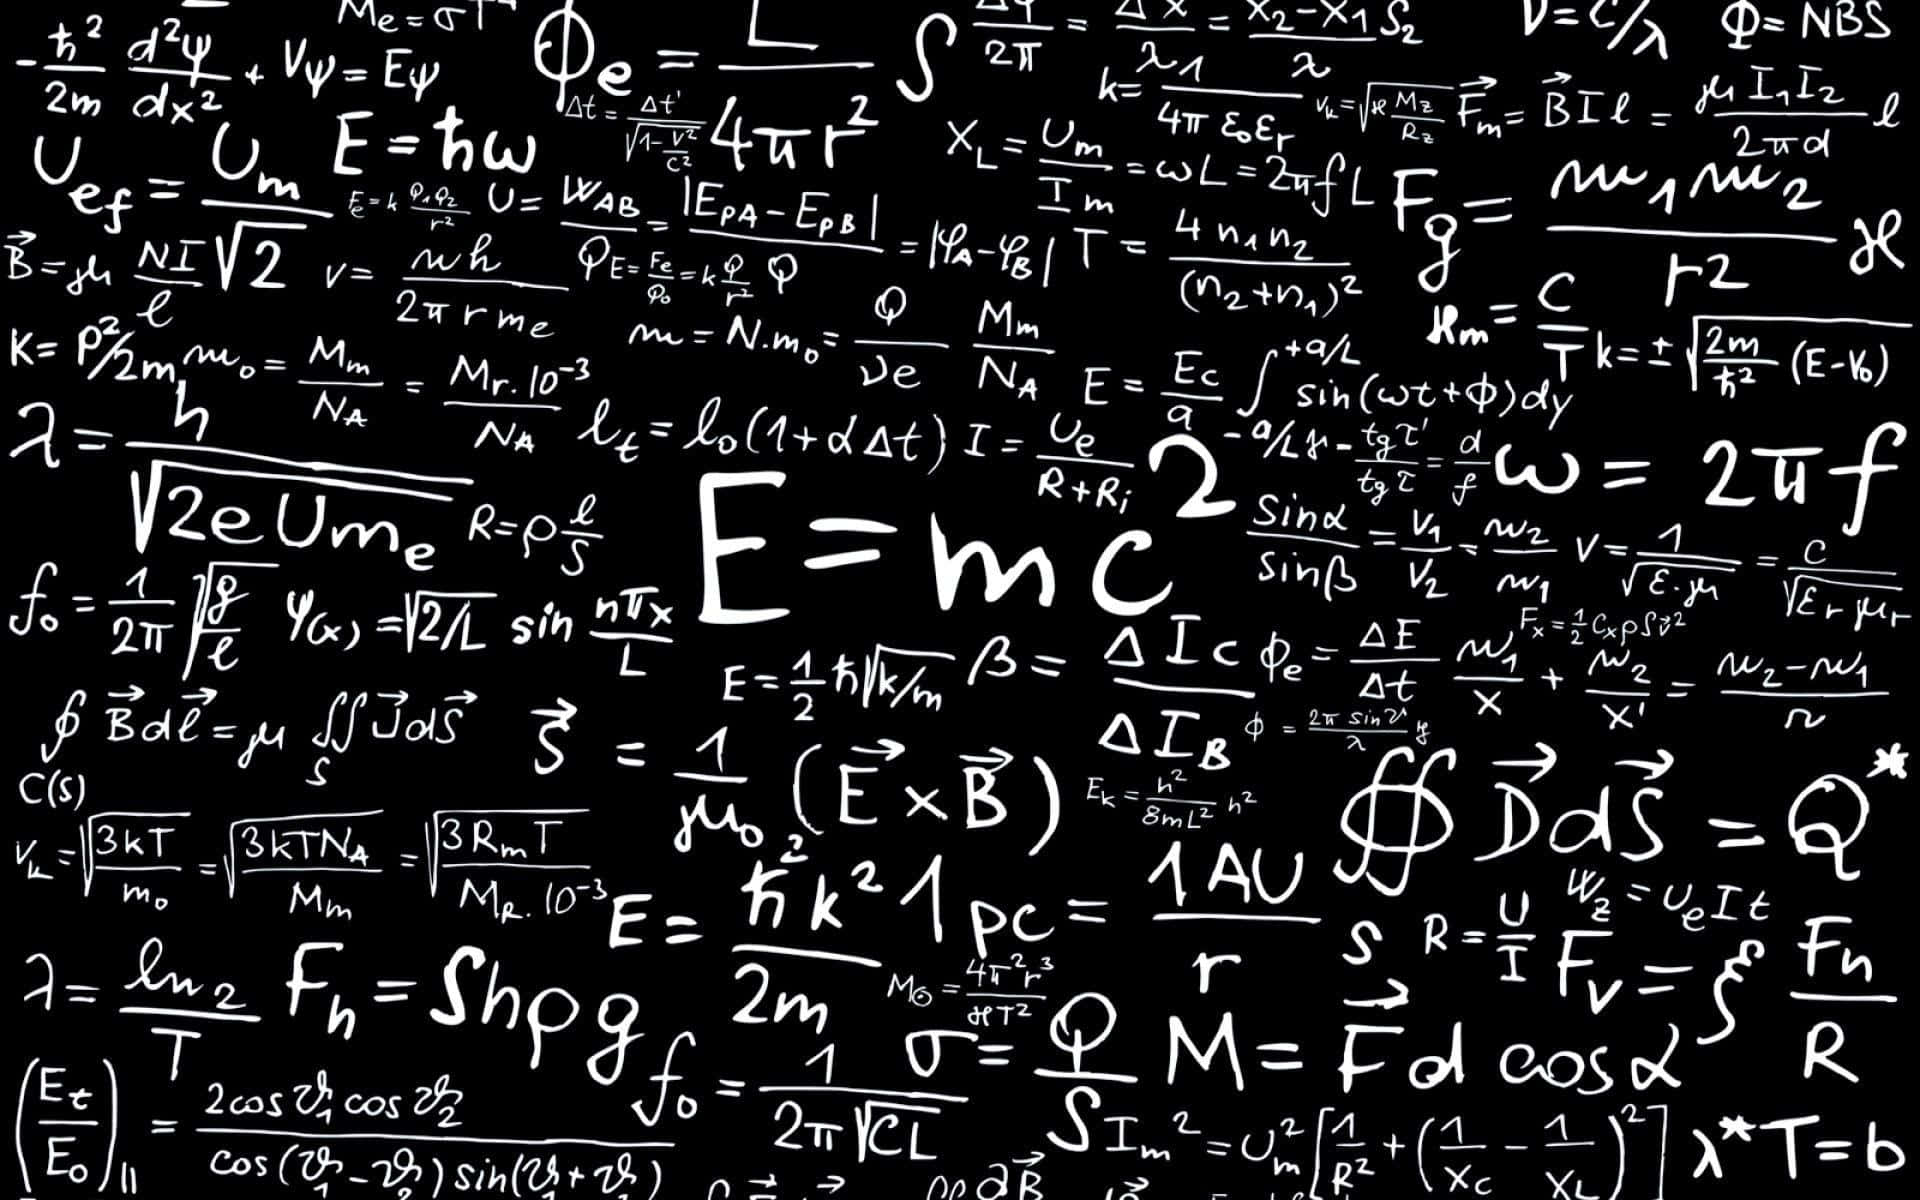 Me = σT⁴
Φe = L / 4πr²
Δφ / 2π = Δx / λ = x₂-x₁ / λ
S₂
ν = c/λ
Φ = NBS
-ħ²/2m d²ψ/dx² + Vψ = Eψ
k = 1 / 4π ε₀εr
vk = √(ϰ Mz/Rz)
F⃗m = B⃗Il = μ I₁I₂ / 2πd l
Δt = Δt' / √(1-v²/c²)
Uef = Um / √2
E = ħω
XL = Um / Im = ωL = 2πfL
Fg = m₁m₂ / r² ϰ
Fe = k Q₁Q₂ / r²
U = WAB / Q = |EpA - EpB| / Q = |φA - φB|
T = 4 n₁n₂ / (n₂+n₁)²
B⃗ = μ NI / l
v = nh / 2πrme
E = Fe/Q₀ = k Q/r²
m = N.m₀ = Q / νe Mm / NA
ϰm = C / T
k = ± √(2m/ħ² (E-V₀))
K = p²/2m
m₀ = Mm / NA = Mr.10⁻³ / NA
E = Ec / a
∫ +a/L -a/L sin(ωt+ϕ)dy
λ = h / √2eUme
lt = l₀(1+αΔt)
I = Ue / R+Ri
γ = tgτ' / tgτ = d / f
ω = 2πf
R = ρ l/S
E = mc²
sinα / sinβ = v₁ / v₂ = n₂ / n₁
v = 1 / √ε.μ = c / √εrμr
f₀ = 1/2π √(g/l)
ψ(x) = √2/L sin nπx / L
Fx = ½ CxρSv²
E = ½ħ√k/m
β = ΔIc / ΔIB
ϕe = ΔE / Δt
n₁/x + n₂/x' = n₂-n₁ / r
∮ B⃗dl⃗ = μ ∬ J⃗dS⃗
C(S) S
S⃗ = 1/μ₀ (E⃗ × B⃗)
ϕ = 2π sinϑ / λ y
Ek = h² / 8mL² n²
∯ D⃗dS⃗ = Q*
S
vk = √(3kT / m₀) = √(3kTNA / Mm) = √(3RmT / MR.10⁻³)
E = ħ²k² / 2m
1pc = 1AU / r
R = U / I
Wz = UeIt
Fv = ξ Fn / R
λ = ln2 / T
Fh = Shρg
M☉ = 4π²r³ / ϰT²
σ = Q / S
M = F⃗ d cosα
(Et / E₀)॥ = 2cosϑ₁cosϑ₂ / cos(ϑ₁-ϑ₂)sin(ϑ₁+ϑ₂)
f₀ = 1 / 2π√CL
Im² = Um² [1/R² + (1/XC - 1/XL)²]
λ*T = b